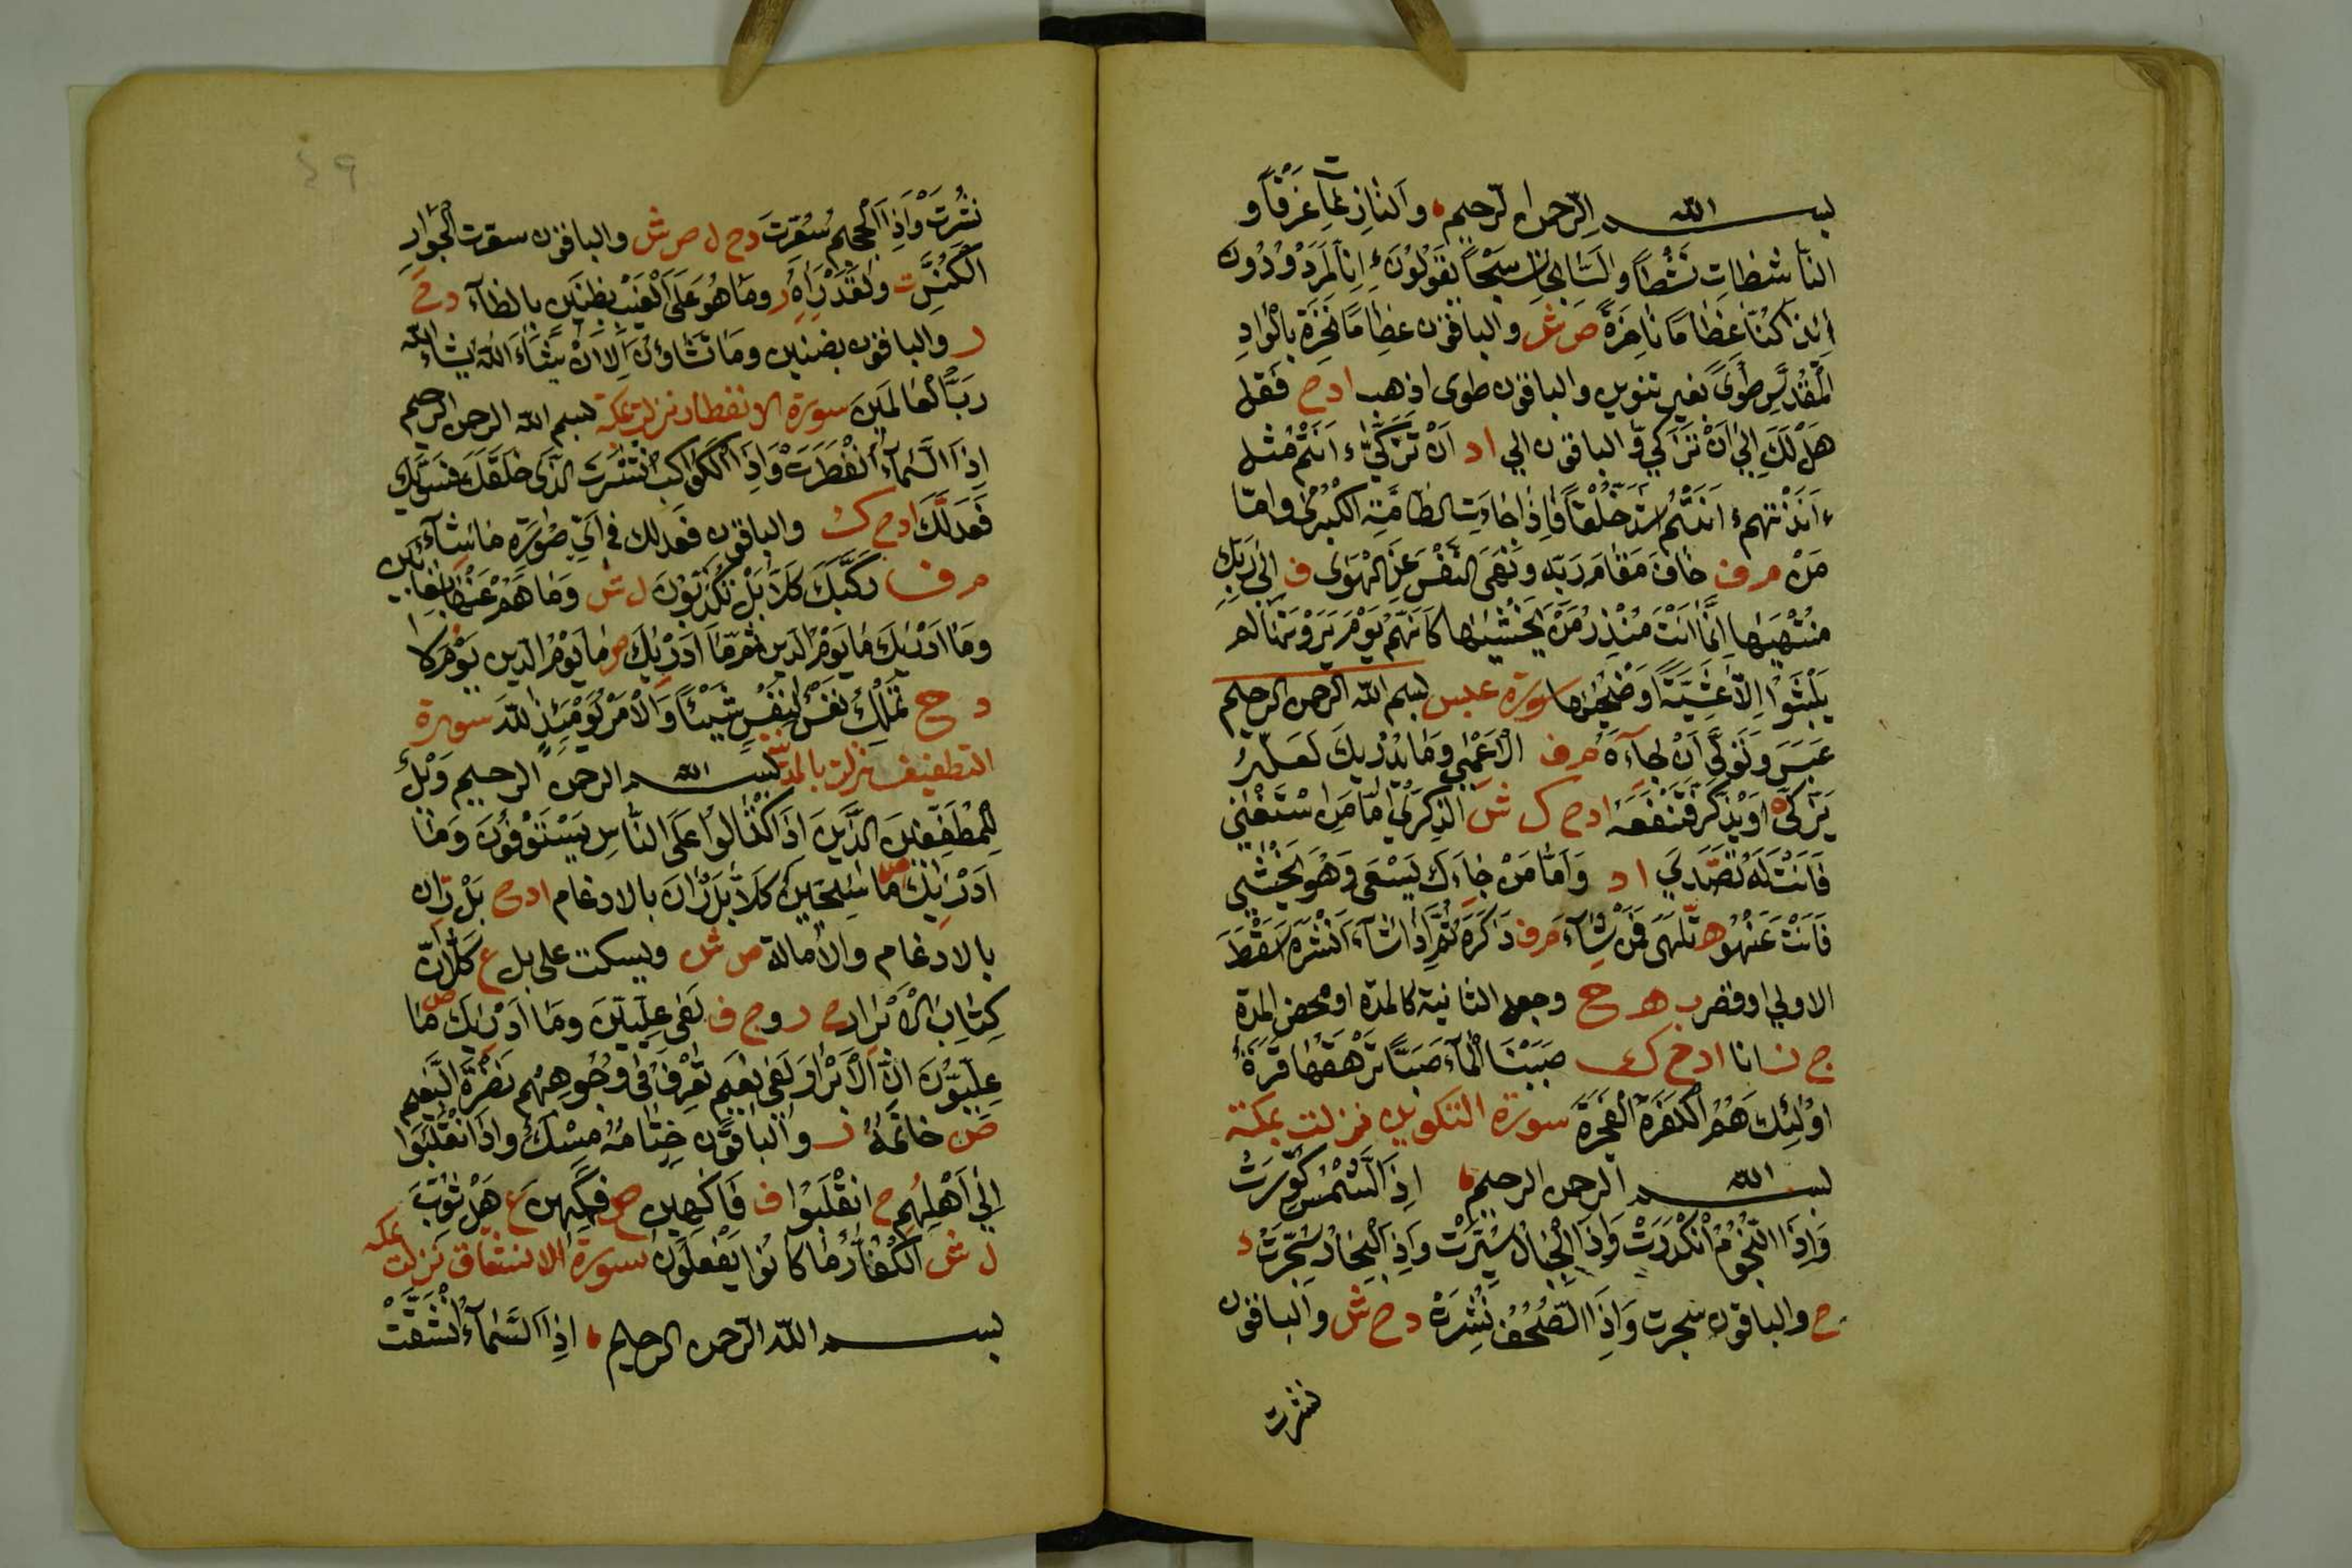 بسم الله الرحمن الرحيم والنازعات غرقا و
الناشطات نشطا والسابحات سبحا يقولون ءانا لمردودون
ائذا كنا عظاما ناخرة ص ش والباقون عظاما نخرة بالواد
المقدس طوى بغير تنوين والباقون طوى اذهب ا د ح فقل
هل لك الي ان تزكي والباقون الي ا د ان تزكي ءانتم مثل
ءانذرتهم ءانتم اشد خلقا فاذا جاءت الطامة الكبرى واما
من م ر ف خاف مقام ربه ونهى النفس عن الهوى ف الى ربك
منتهيها انما انت منذر من يخشيها كانهم يوم يرونها لم
يلبثوا الا عشية او ضحيها سورة عبس بسم الله الرحمن الرحيم
عبس وتولى ان جآءه م ر ف الاعمى وما يدريك لعله
يزكى او يذكر فتنفعه ا د ح ك ش الذكرى اما من استغنى
فانت له تصدي ا د واما من جاءك يسعى وهو يخشى
فانت عنهو ه تلهى فمن شآء م ر ف ذكره ثم اذا شآء انشره اسقط
الاولي او قصر ب ه ح وجعل الثانية كالمدة او محض المدة
ج ن انا ا د ح ك صببنا المآء صبا ترهقها قترة
اولئك هم الكفرة الفجرة سورة التكوير نزلت بمكة
بسم الله الرحمن الرحيم اذا الشمس كورت
واذا النجوم انكدرت واذا الجبال سيرت واذا البحار سجرت د
ح والباقون سجرت واذا الصحف نشرة د ح ش والباقون
نشرت
٤٩
نشرت واذا الجحيم سعرت د ح ل ص ش والباقون سعرت الجوار
الكنس ت ولقد راه ر وما هو على الغيب بظنين بالظآء د ح
ر والباقون بضنين وما تشاؤن الا ان يشاء الله يشاء الله
رب العالمين سورة الانفطار نزلت بمكة بسم الله الرحمن الرحيم
اذا السمآء انفطرت واذا الكواكب انتثرت الذى خلقك فسويك
فعدلك ا د ح ك والباقون فعدلك في اي صورة ما شآء
م ر ف ركبك كلا بل تكذبون ل ش وما هم عنها بغايبين
وما ادريك ما يوم الدين ثم ما ادريك ص ما يوم الدين يوم لا
د ح تملك نفس لنفس شيئا والامر يومئذ لله سورة
التطفيف نزلت بالمدينة بسم الله الرحمن الرحيم ويل
للمطففين الذين اذا اكتالوا على الناس يستوفون وما
ادريك ص ما سجين كلا بل ران بالادغام ا د ح بل ران
بالادغام والامالة ص ش ويسكت على بل ع كلا ان
كتاب الابرار ح ر و ج ف لفى عليين وما ادريك ص ما
عليون ان الابرار لفى نعيم تعرف في وجوههم نضرة النعيم
ص خاتمه ر والباقون ختامه مسك واذا انقلبوا
الى اهلهم ح انقلبوا ف فاكهين ص فكهين ع هل ثوب
ل ش الكفار ما كانوا يفعلون سورة الانشقاق نزلت بمكه
بسم الله الرحمن الرحيم اذا السمآء انشقت